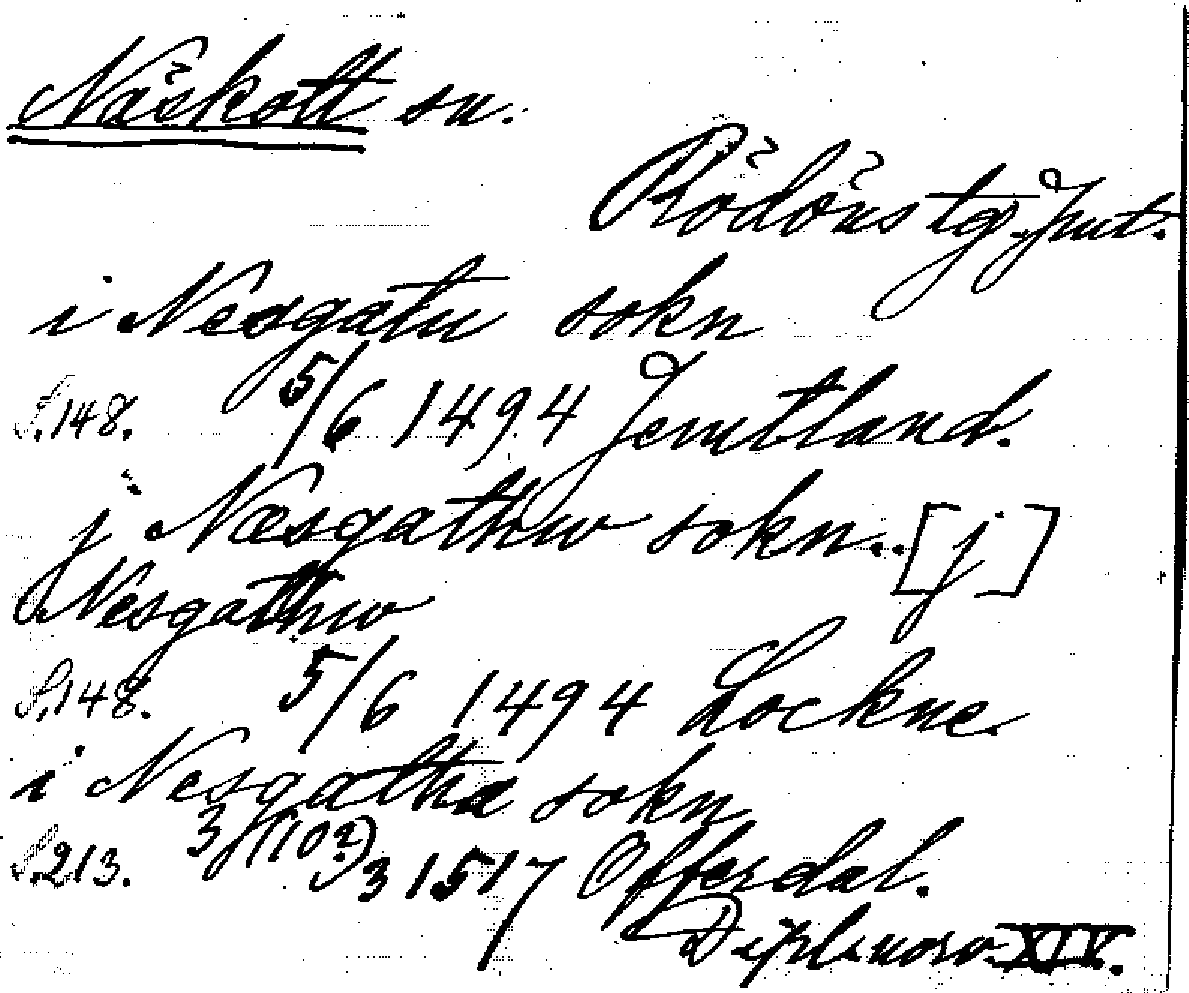 Näskott sn.
Rödöns tg. Jmt.
i Nesgatu sokn
S.148. 5/6 1494 Jemtland.
j Næsgathw sokn...[j]
Nesgathw
S.148. 5/6 1494 Lockne.
i Nesgatha sokn
S.213. 3/(10?)3 1517 Offerdal.
Dipl. norv. XIV.